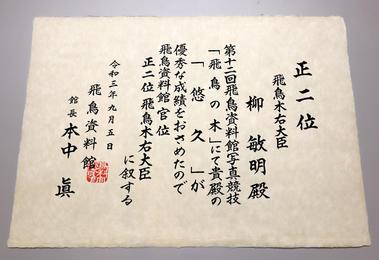 正二位
飛鳥木右大臣
柳敏明殿
第十二回飛鳥資料館写真競技
「飛鳥の木」にて貴殿の
「悠久」が
優秀な成績をおさめたので
飛鳥資料館官位
正二位飛鳥木右大臣
に叙する
令和三年九月五日
飛鳥資料館
館長 本中眞